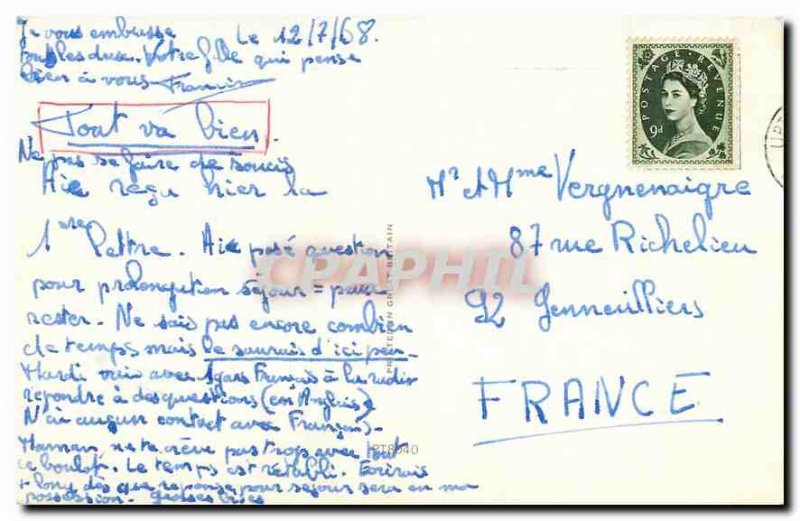 Je vous embrasse
tous les deux. Votre fille qui pense
bien à vous Francin
Le 12/7/68.
Tout va bien.
Ne pas se faire de soucis
Aie reçu hier la
1ère Lettre. Aie posé question
pour prolongation séjour = pour
rester. Ne sais pas encore combien
de temps mais le saurais d'ici peu.
Mardi vais avec 1 gars Français à la radio
répondre à des questions (en Anglais)
N'ai aucun contact avec Français.
Maman ne te crève pas trop avec tout
ce boulot. Le temps est rétabli. Ecrirais
+ long dès que réponse pour séjour sera en ma
possession.
POSTAGE REVENUE
9d
Mr et Mme Vergnenaigre
87 rue Richelieu
92 Genneuilliers
FRANCE
PRINTED IN GREAT BRITAIN
PT8040
CPAPHIL